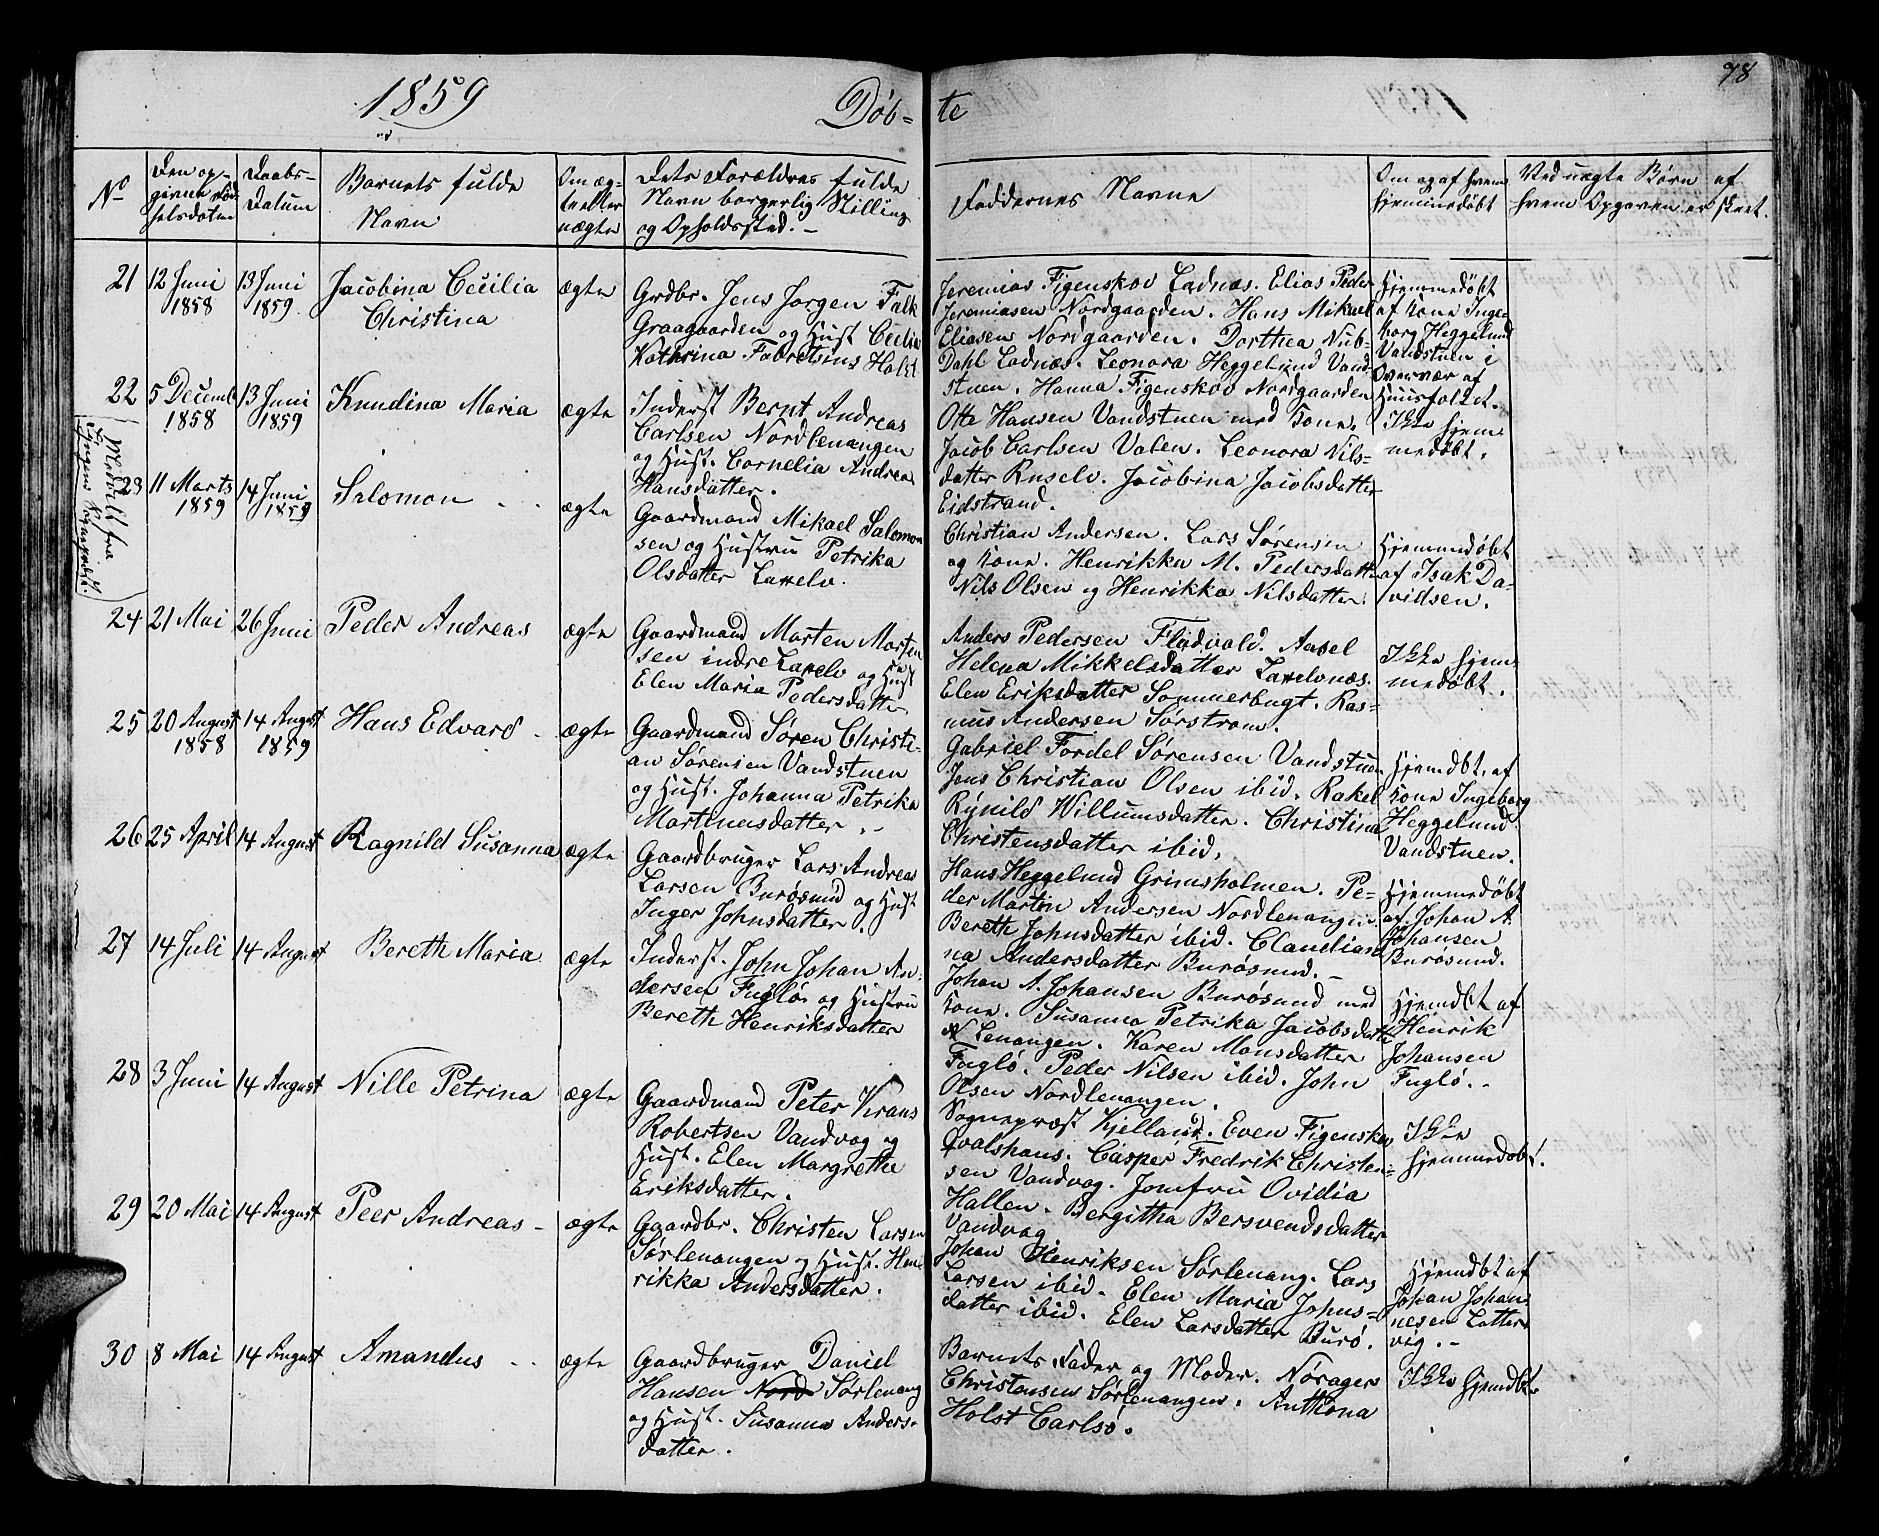 1859
Døb-
te
78
No
Den op-
givne Fød-
selsdatum
Daabs-
Datum
Barnets fulde
Navn
Om æg-
te eller
uægte
Dets Forældres fulde
Navn borgerlig Stilling
og Opholdssted. -
Faddernes Navne
Om og af hvem
hjemmedøbt
Ved uægte Børn af
hvem Opgaven er skeet.
21
12 Juni
1858
13 Juni
1859.
Jacobina Cecilia
Christina
ægte
Grdbr. Jens Jørgen Falk
Graagaarden og Hust Cecilia
Kathrina Fabretsius Holst
Jeremias Figenskov Ladnæs. Elias Peder
Jeremiasen Nordgaarden. Hans Mikael
Eliasen Nordgaarden. Dorthea Nub-
Dahl Ladnæs. Leonora Heggelund Vand-
stuen. Hanna Figenskov Nordgaarden
Hjemmedøbt
af Kone Inge-
borg Heggelund
Vandstuen i
Overvær af
Huusfolket.
22
5 Decemb
1858
13 Juni
1859
Knudina Maria
ægte
Inderst Bernt Andreas
Carlsen Nordlenangen
og Hust. Cornelia Andrea
Hansdatter.
Otte Hansen Vandstuen med Kone.
Jacob Carlsen Valen. Leonora Nils-
datter Russelv. Jacobina Jacobsdatter
Eidstrand.
Ikke hjem-
medøbt.
Meddelt fra
Lyngens Sogneprest.
23
11 Marts
1859
14 Juni
1859
Salomon - -
ægte
Gaardmand Mikael Salomon
sen og Hustru Petrika
Olsdatter Lakselv.
Christian Andersen. Lars Sørensen
og Kone. Henrikka M. Pedersdatter
Nils Olsen og Henrikka Nilsdatter.
Hjemmedøbt
af Isak Da-
vidsen.
24
21 Mai
26 Juni
Peder Andreas
ægte
Gaardmand Morten Morten
sen indre Lakselv og Hust
Elen Maria Pedersdatter
Anders Pedersen Fladvald. Aasel
Helena Mikkelsdatter Lakselvnæs.
Elen Eriksdatter Sommerbugt. Ras-
mus Andersen Sørstrøm.
Ikke hjem-
medøbt.
25
20 August
1858
14 August
1859
Hans Edvard -
ægte
Gaardmand Søren Christi-
an Sørensen Vandstuen
og Hust. Johanna Petrika
Martinusdatter. -
Gabriel Fordel Sørensen Vandstuen
Jens Christian Olsen ibid. Rakel
Rynild Willumsdatter. Christina
Christensdatter ibid.
Hjemdbt. af
Kone Ingeborg
Heggelund
Vandstuen.
26
25 April
14 August
Ragnild Susanna
ægte
Gaardbruger Lars Andreas
Larsen Burøsund og Hust
Inger Johnsdatter.
Hans Heggelund Grimsholmen. Pe-
der Martin Andersen Nordlenangen.
Bereth Johnsdatter ibid. Claudian
na Andersdatter Burøsund. -
Hjemmedøbt
af Johan A.
Johansen
Burøsund.
27
14 Juli
14 August
Bereth Maria
ægte
Inderst. John Johan An-
dersen Fuglø og Hustru
Bereth Henriksdatter
Johan A. Johansen Burøsund med
Kone. Susanna Petrika Jacobsdatter
N Lenangen. Karen Monsdatter
Fuglø. Peder Nilsen ibid. John
Olsen Nordlenangen.
Hjemdbt af
Henrik
Johansen
Fuglø. -
28
3 Juni
14 August
Nille Petrina
ægte
Gaardmand Peter Krans
Robertsen Vandvag og
Hust. Elen Margrethe
Eriksdatter.
Sognepræst Kjelland. Even Figenskov
Qvalshaus. Casper Fredrik Christen-
sen Vandvag. Jomfru Ovidia
Hallen. Bergitha Bersvendsdatter
Vandvag
Ikke
hjemmedøbt.
29
20 Mai
14 August
Peer Andreas -
ægte
Gaardbr. Christen Larsen
Sørlenangen og Hust. Hen
rikka Andersdatter.
Johan Henriksen Sørlenang. Lars
Larsen ibid. Elen Maria Johns-
datter ibid. Elen Larsdatter Burø.
Hjemdbt af
Johan Johan-
nesen Latter
vig. -
30
8 Mai
14 August
Amandus - -
ægte
Gaardbruger Daniel
Hansen Nord Sørlenang
og Hust. Susanna Anders-
datter.
Barnets Fader og Moder. Nørager
Christensen Sørlenangen. Anthona
Holst Carlsø.
Ikke hjemdbt